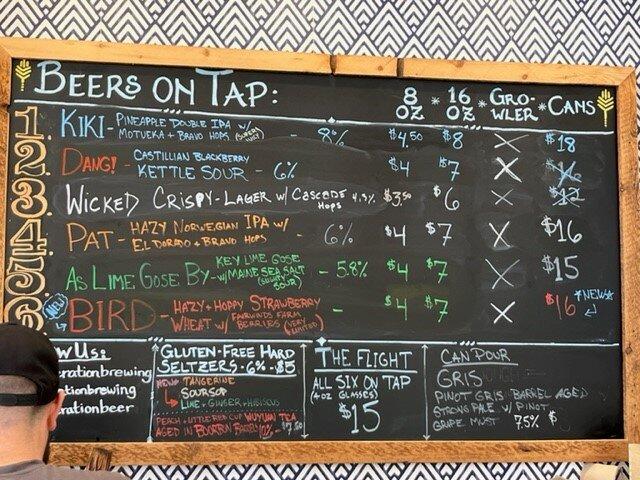 BEERS ON TAP: 8 OZ * 16 OZ * GRO-WLER * CANS
1. KIKI - PINEAPPLE DOUBLE IPA W/
MOTUEKA + BRAVO HOPS - 8% $4.50 $8 X $18
2. DANG! - CASTILLIAN BLACKBERRY
KETTLE SOUR - 6% $4 $7 X
3. WICKED CRISPY - LAGER W/ CASCADE
HOPS $3.50 $6 X $12
4. PAT - HAZY NORWEGIAN IPA W/
EL DORADO + BRAVO HOPS - 6% $4 $7 X $16
5. AS LIME GOSE BY - KEY LIME GOSE
W/ MAINE SEA SALT - 5.8% $4 $7 X $15
6. NEW BIRD - HAZY + HOPPY STRAWBERRY
WHEAT W/ FAIRWINDS FARM
BERRIES (VERY LIMITED) - $4 $7 X $16 *NEW*
W US:
rationbrewing
ationbrewing
rationbeer
GLUTEN-FREE HARD
SELTZERS - 6% - $5
NEW TANGERINE
SOURSOP
LIME + GINGER + HIBISCUS
PEACH + LITTLE RED CUP WUYUAN TEA
AGED IN BOURBON BARRELS 10% - $7.50
THE FLIGHT
ALL SIX ON TAP
(4 OZ GLASSES)
$15
CAN POUR
GRIS
PINOT GRIS BARREL AGED
STRONG PALE W/ PINOT
GRIPE MUST 7.5% $